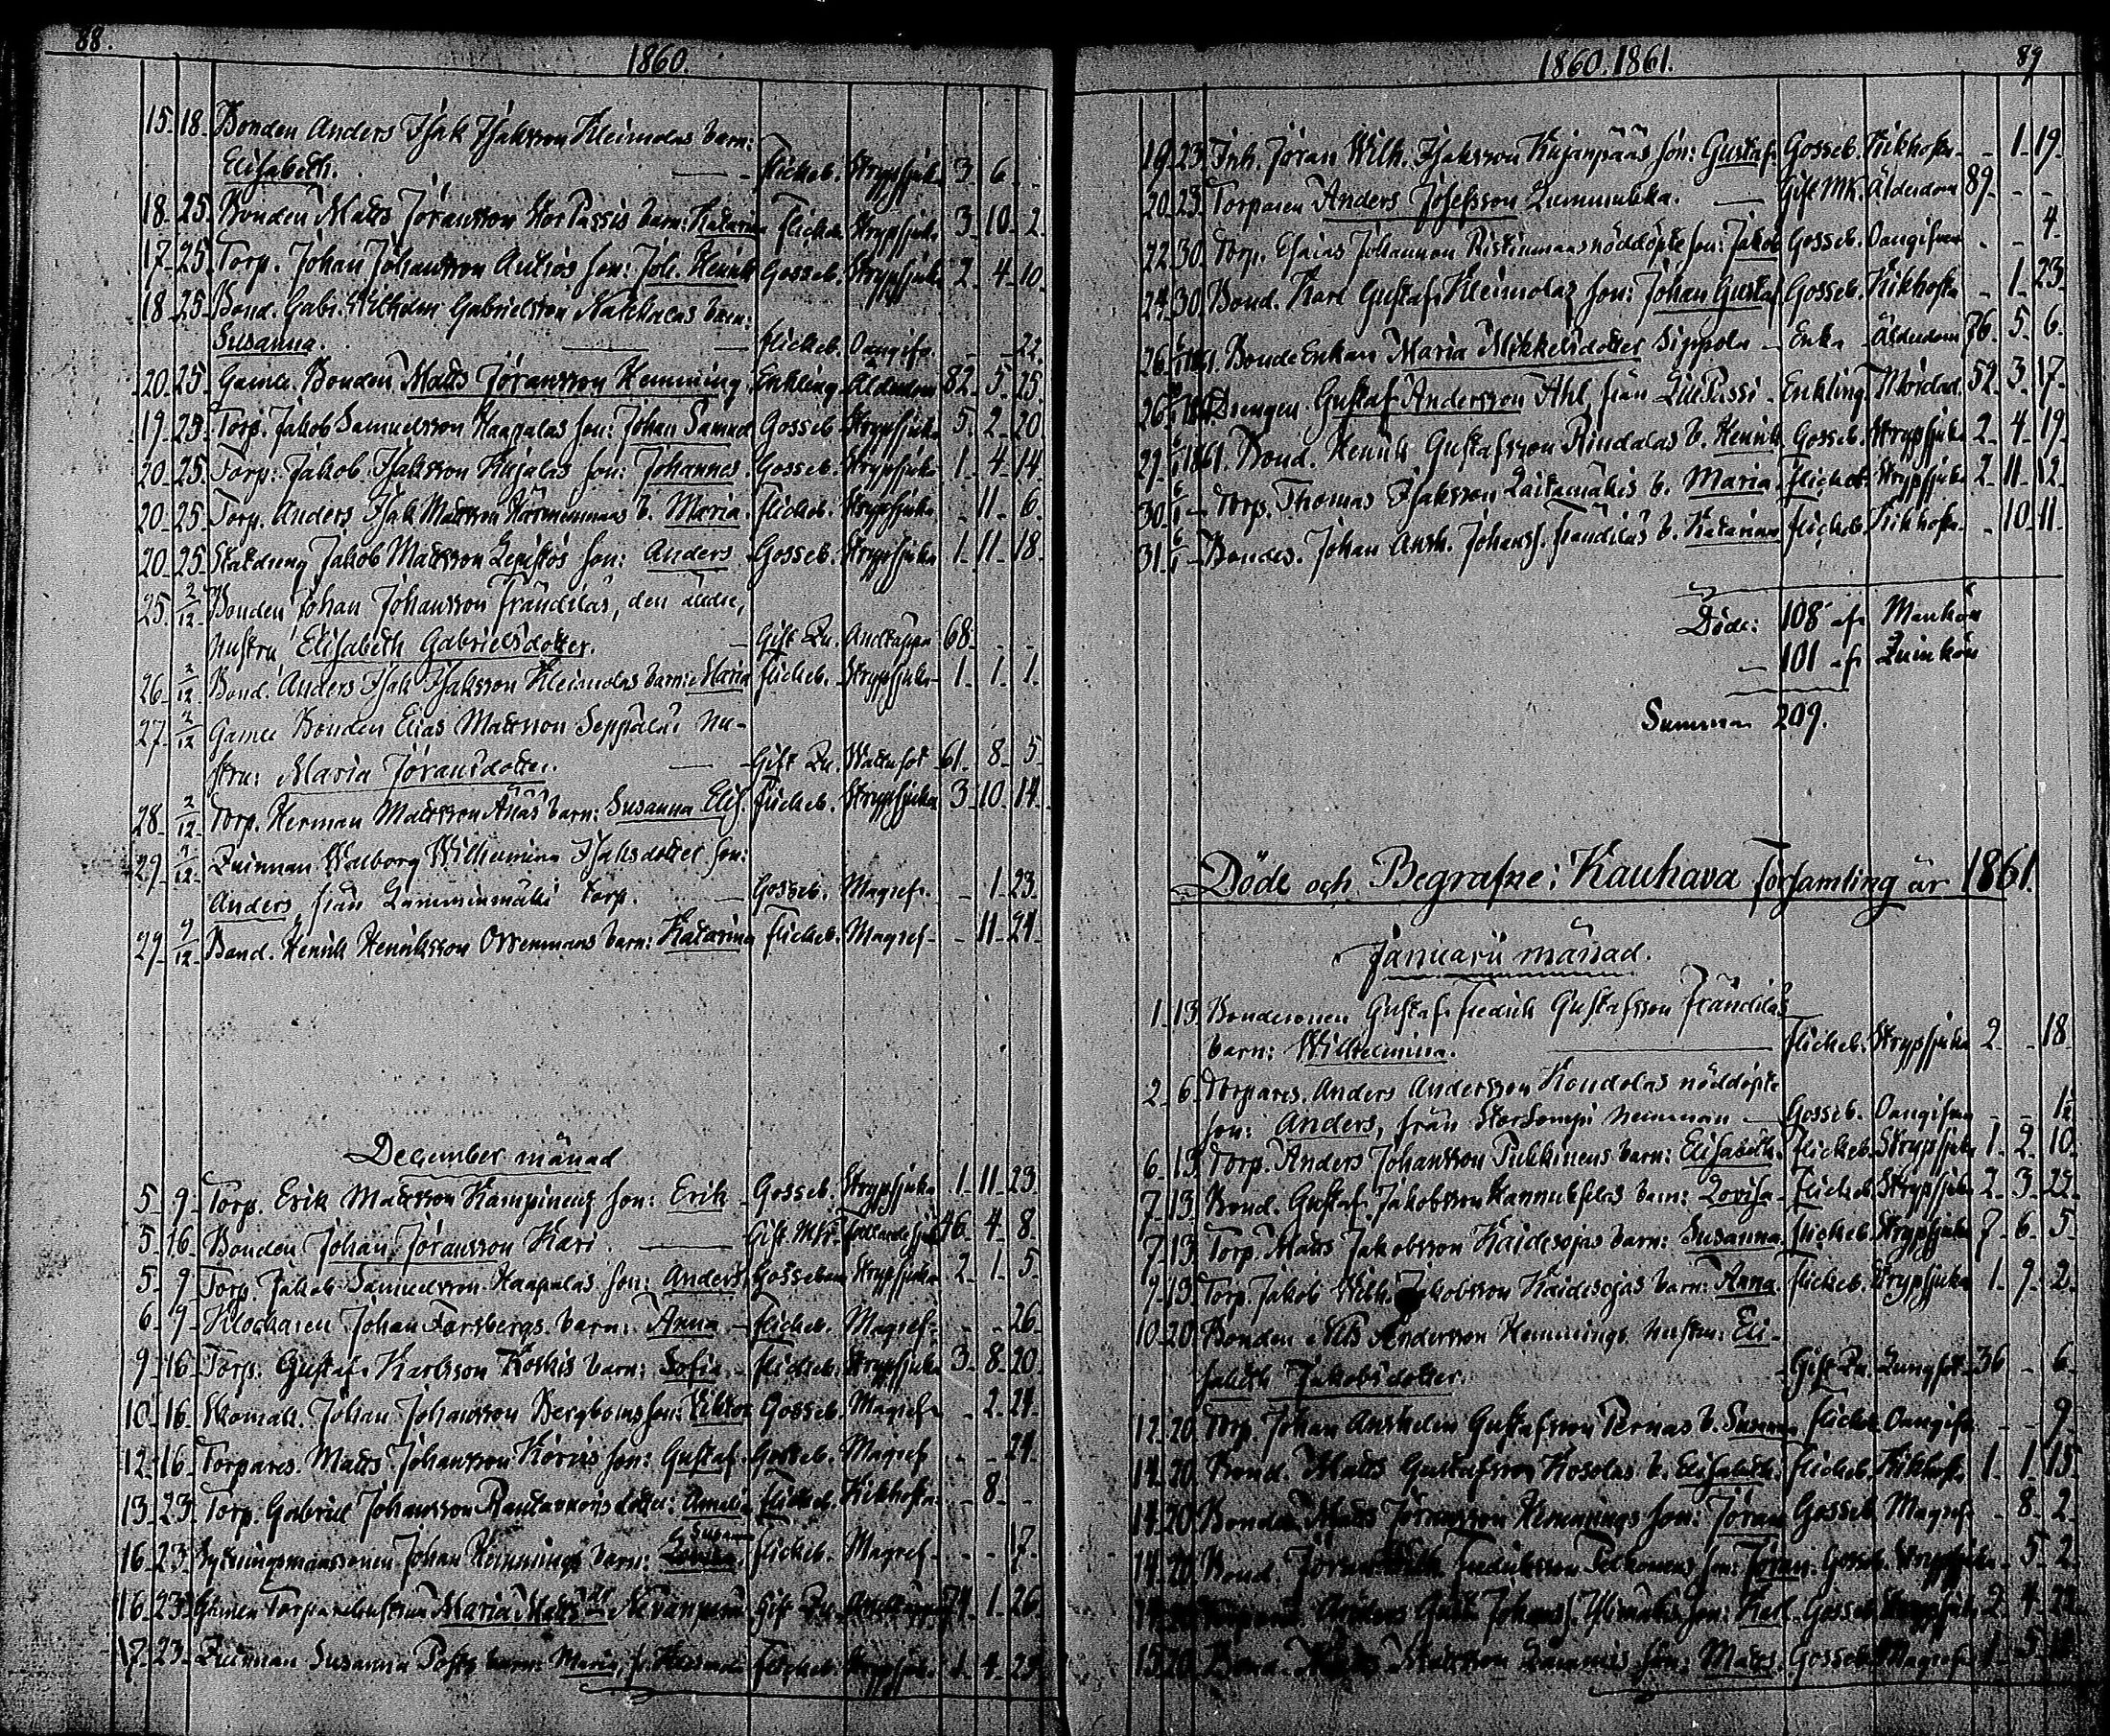 88.
1860.
15. 18. Bonden Anders Isak Isaksson Kleimolas barn:
Elisabeth. — Flickeb. Strypsjuka 3. 6. -
18. 25. Bonden Matts Jöransson Stor Passis barn: Katarina Flickeb. Strypsjuka 3. 10. 2.
17. 25. Torp. Johan Johansson Autios son: Joh. Henrik Gosseb. Strypsjuka 2. 4. 10.
18. 25. Bond. Gabr. Wilhelm Gabrielsson barn:
Susanna. — Flickeb. Oangifv. - - 22.
20. 25. Gamle Bonden Matts Jöransson Hemming. Enkling Ålderdom 82. 5. 25.
19. 25. Torp. Jakob Samuelsson Haapalas son: Johan Samuel Gosseb. Strypsjuka 5. 2. 20.
20. 25. Torp. Jakob Isaksson Kujalas son: Johannes. Gosseb. Strypsjuka 1. 4. 14.
20. 25. Torp. Anders Isak Mattsson b. Maria. Flickeb. Strypsjuka - 11. 6.
20. 25. Statdreng Jakob Mattsson Lepistös son: Anders Gosseb. Strypsjuka 1. 11. 18.
25. 2/12 Bonden Johan Johansson Frändiläs, den äldre,
hustru Elisabeth Gabrielsdotter. — Gift Qu. Andtäppa 68. - -
26. 2/12 Bond. Anders Isak Isaksson Kleimolas barn: Maria Flickeb. Strypsjuka 1. 1. 1.
27. 2/12 Gamle Bonden Elias Mattsson Seppälä hu-
stru: Maria Jöransdotter. — Gift Qu. Wattusot 61. 8. 5.
28. 2/12 Torp. Herman Mattsson barn: Susanna Elis. Flickeb. Strypsjuka 3. 10. 14.
29. 9/12 Quinnan Walborg Wilhelmina Isaksdotter son:
Anders från Torp. — Gosseb. Magref. - 1. 23.
29. 9/12 Bond. Henrik Henriksson barn: Katarina Flickeb. Magref. - 11. 24.
December månad
5. 9. Torp. Erik Mattsson Kampinens son: Erik Gosseb. Strypsjuka 1. 11. 23.
5. 16. Bonden Johan Jöransson Kari. — Gift MK. 46. 4. 8.
5. 9. Torp. Jakob Samuelsson Haapalas son: Anders Gossebarn Strypsjuka 2. 1. 5.
6. 9. Klockaren Johan Forsbergs barn: Anna — Flickeb. Magref. - - 26.
9. 16. Torp. Gustaf Karlsson Koskis barn: Sofia Flickeb. Strypsjuka 3. 8. 20.
10. 16. Skomak. Johan Johansson Bergboms son: Viktor Gosseb. Magref. - 2. 24.
12. 16. Torpares. Matts Johansson son: Gustaf Gosseb. Magref - - 24.
13. 23. Torp. Gabriel Johansson dotter: Amalia Flickeb. Kikhosta - 8. -
16. 23. Sytningsmanssonen Johan Hemmings barn: Susanna Flickeb. Magref. - - 17.
16. 23. Maria Matts dr Gift Qu. 1. 26.
17. 23. Quinnan Susanna barn: Maria, Flickeb. Strypsjuk. 1. 4.
1860. 1861.
89
19. 23. Inh. Jöran Wilh. Isaksson Kujanpääs son: Gustaf Gosseb. Kikhosta - 1. 19.
20. 23. Torparen Anders Josefsson Lummukka. — Gift MK. Ålderdom 89. - -
22. 30. Torp. Esaias Johansson Ristinmaas nöddöpte son: Jakob Gosseb. Oangifven - - 4.
24. 30. Bond. Karl Gustaf Kleimolas son: Johan Gustaf Gosseb. Kikhosta - 1. 23.
26. 1861. BondeEnkan Maria Mikkelsdotter Sippola — Enka Ålderdom 76. 5. 6.
26. 1861. Drengen Gustaf Andersson Ahl från LillPassi Enkling Mördad. 52. 3. 17.
29. 6/1 1861. Bond. Henrik Gustafsson Rindalas b. Henrik Gosseb. Strypsjuka 2. 4. 19.
30. 6/1 — Torp. Thomas Isaksson Laitamäkis b. Maria Flickeb. Strypsjuka 2. 11. 12.
31. 6/1 — Bondes. Johan Ansh. Johanss. Frändiläs b. Katarina Flickeb. Kikhosta - 10. 11.
Döde: 108 af Mankön
— 101 af Quinkön
Summa 209.
Döde och Begrafne i Kauhava Församling år 1861.
Januarii månad.
1. 13. Bondesonen Gustaf Fredrik Gustafsson Frändiläs
barn: Wilhelmina. — Flickeb. Strypsjuka 2. - 18.
2. 6. Torpares. Anders Andersson Kondolas nöddöpte
son: Anders, från hemman — Gosseb. Oangifven - - 1/2
6. 13. Torp. Anders Johansson Pukkinens barn: Elisabeth. Flickeb. Strypsjuka 1. 2. 10.
7. 13. Bond. Gustaf Jakobsson Hannukselas barn: Lovisa Flickeb. Strypsjuka 2. 3. 22.
7. 13. Torp. Matts Jakobsson Kaidesojas barn: Susanna Flickeb. Strypsjuka 7. 6. 5.
9. 13. Torp. Jakob Wilh. Jakobsson Kaidesojas barn: Anna Flickeb. Strypsjuka 1. 9. 2.
10. 20. Bonden Nils Andersson Hemmings hustru: Eli-
sabeth Jakobsdotter. Gift Qu. Lungsot 36 - 6.
12. 20. Torp. Johan Anshelm Gustafsson Pernas b. Susanna Flickeb. Oangifv. - - 9.
14. 20. Bond. Matts Gustafsson Kosolas b. Elisabeth. Flickeb. Kikhosta 1. 1. 15.
14. 20. Bonden Matts Jöransson Hemmings son: Jöran Gosseb. Magref. - 8. 2.
14. 20. Bond. Jöran Wilh. Fredriksson son: Jöran. Gosseb. Strypsjuka - 5. 2.
Anders Johanss. son: Karl. Gosseb. Strypsjuka 2. 4.
15. 20. Bond. Mattsson son: Matts. Gosseb. Magref